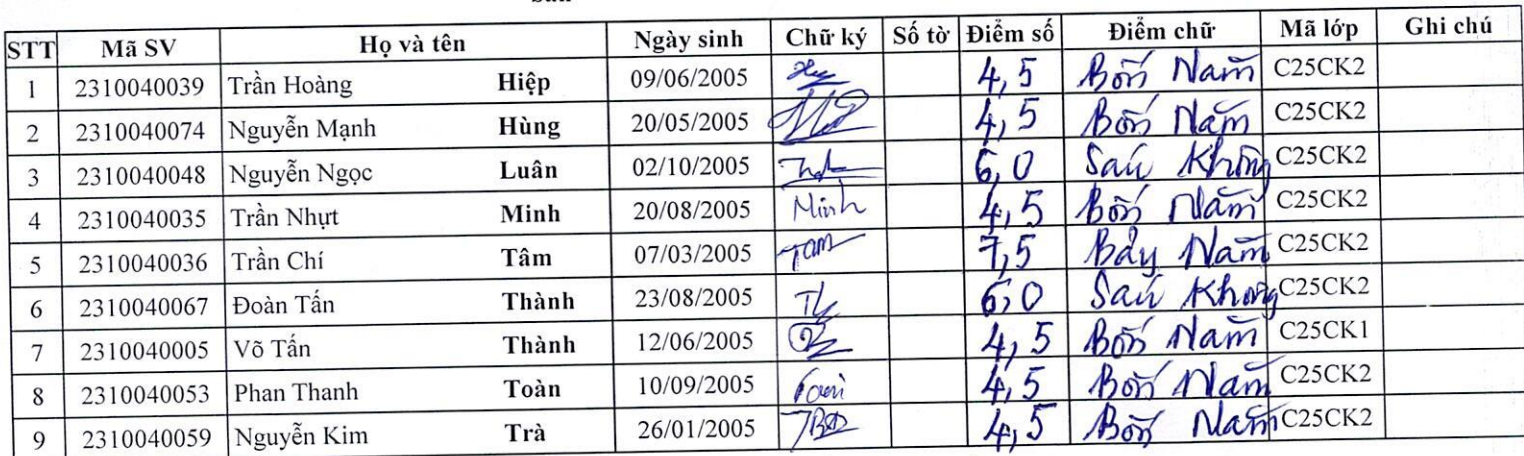 STT Mã SV Họ và tên Ngày sinh Chữ ký Số tờ Điểm số Điểm chữ Mã lớp Ghi chú
1 2310040039 Trần Hoàng Hiệp 09/06/2005 4,5 Bốn Năm C25CK2
2 2310040074 Nguyễn Mạnh Hùng 20/05/2005 4,5 Bốn Năm C25CK2
3 2310040048 Nguyễn Ngọc Luân 02/10/2005 6,0 Sáu Không C25CK2
4 2310040035 Trần Nhựt Minh 20/08/2005 Minh 4,5 Bốn Năm C25CK2
5 2310040036 Trần Chí Tâm 07/03/2005 Tam 7,5 Bảy Năm C25CK2
6 2310040067 Đoàn Tấn Thành 23/08/2005 6,0 Sáu Không C25CK2
7 2310040005 Võ Tấn Thành 12/06/2005 4,5 Bốn Năm C25CK1
8 2310040053 Phan Thanh Toàn 10/09/2005 4,5 Bốn Năm C25CK2
9 2310040059 Nguyễn Kim Trà 26/01/2005 4,5 Bốn Năm C25CK2